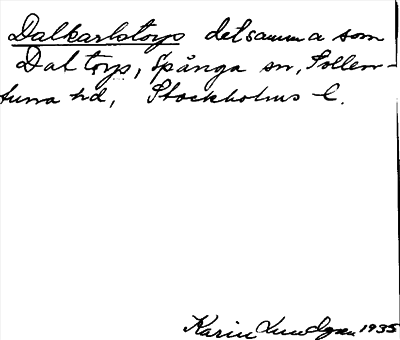 Dalkarlstorp detsamma som
Daltorp, Spånga sn, Sollen-
tuna hd, Stockholms l.
Karin Lundgren 1935